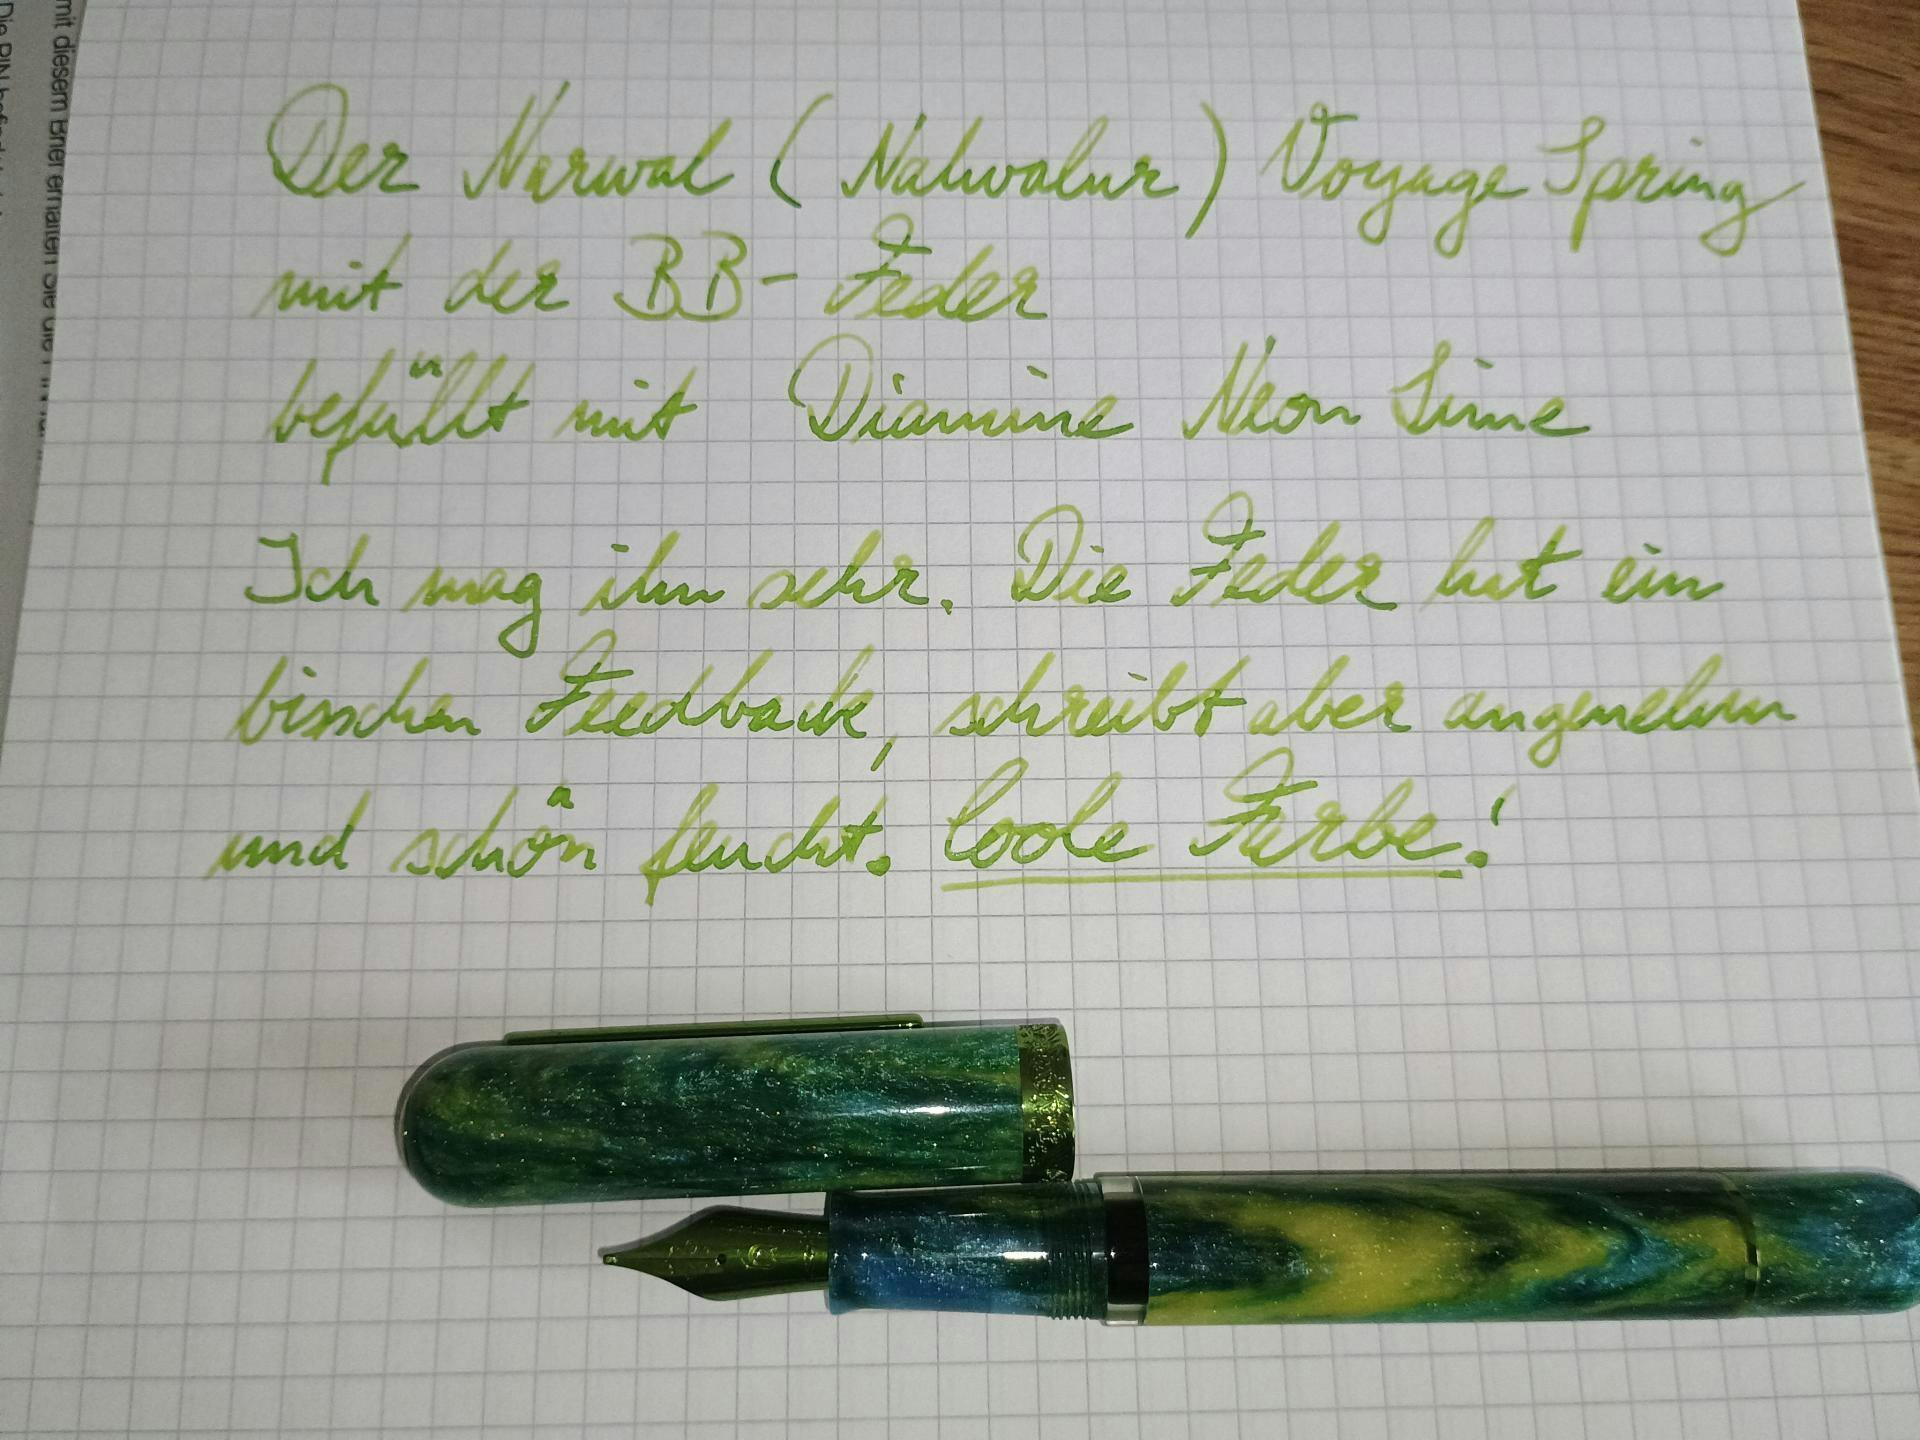 mit diesem Brief erhalten Sie die PIN
Der Narwal (Nahvalur) Voyage Spring
mit der BB-Feder
befüllt mit Diamine Neon Lime
Ich mag ihn sehr. Die Feder hat ein
bisschen Feedback, schreibt aber angenehm
und schön feucht. Coole Farbe!